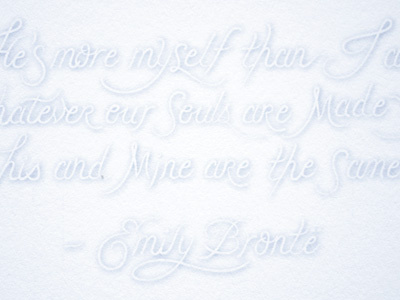 He's more myself than I a
hatever our Souls are Made
his and Mine are the Same
- Emily Brontë